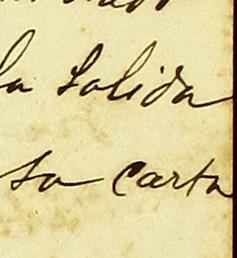 la Salida
sa carta